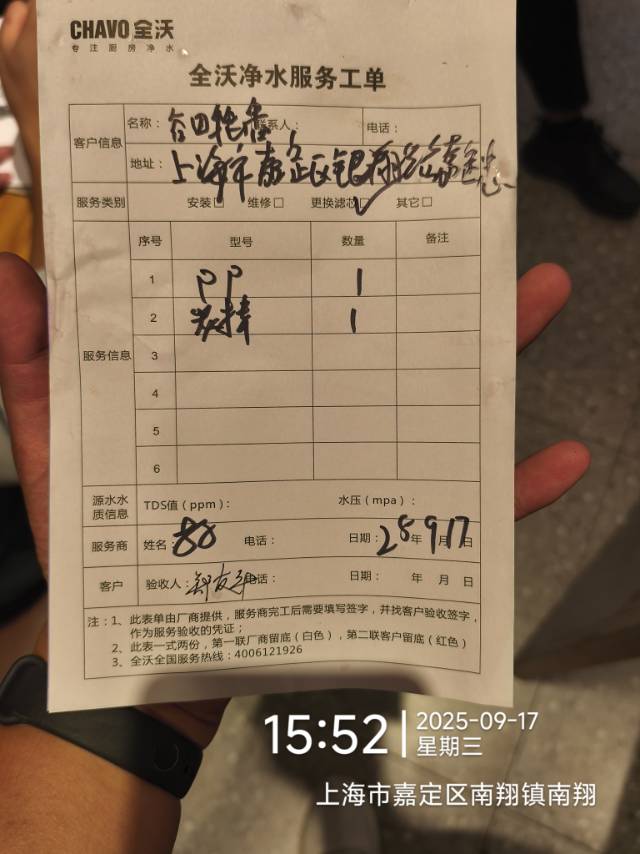 CHAVO 全沃
专注厨房净水
全沃净水服务工单
客户信息
名称： 联系人： 电话：
地址：上海市嘉定区
服务类别 安装□ 维修□ 更换滤芯□ 其它□
服务信息
序号 型号 数量 备注
1 PP 1
2 炭棒 1
3
4
5
6
源水水质信息 TDS值（ppm）： 水压（mpa）：
服务商 姓名： 电话： 日期：25年9月17日
客户 验收人： 电话： 日期： 年 月 日
注：1、此表单由厂商提供，服务商完工后需要填写签字，并找客户验收签字，
作为服务验收的凭证；
2、此表一式两份，第一联厂商留底（白色），第二联客户留底（红色）
3、全沃全国服务热线：4006121926
15:52
2025-09-17
星期三
上海市嘉定区南翔镇南翔